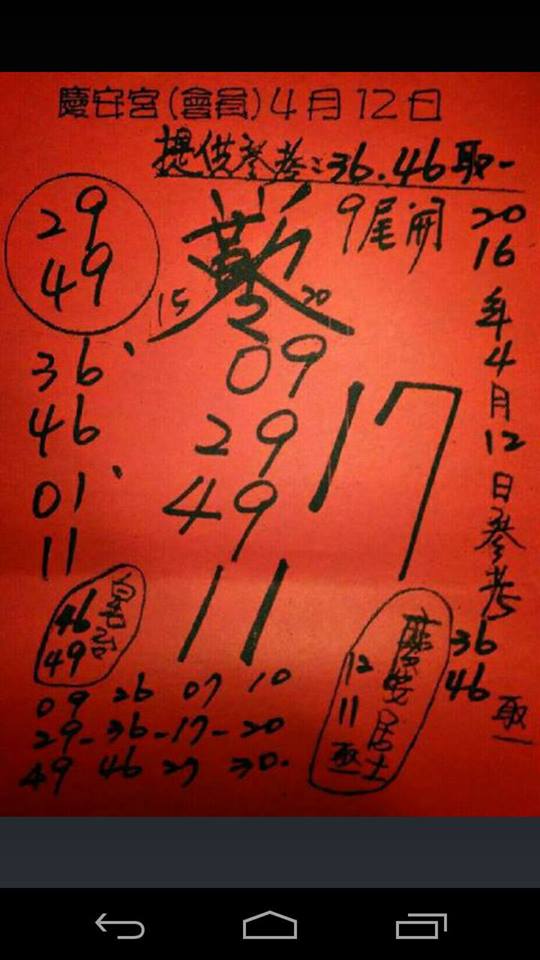 慶安宮(會員)4月12日
提供參考:36.46取一
29
49
9尾開
15 20
36、
46
01、
11
09
29
49
11
17
2016年4月12日參考
36
46取一
46
49
慶安居士
12
11取
09 26 07 10
29-36-17-20
49 46 27 30.